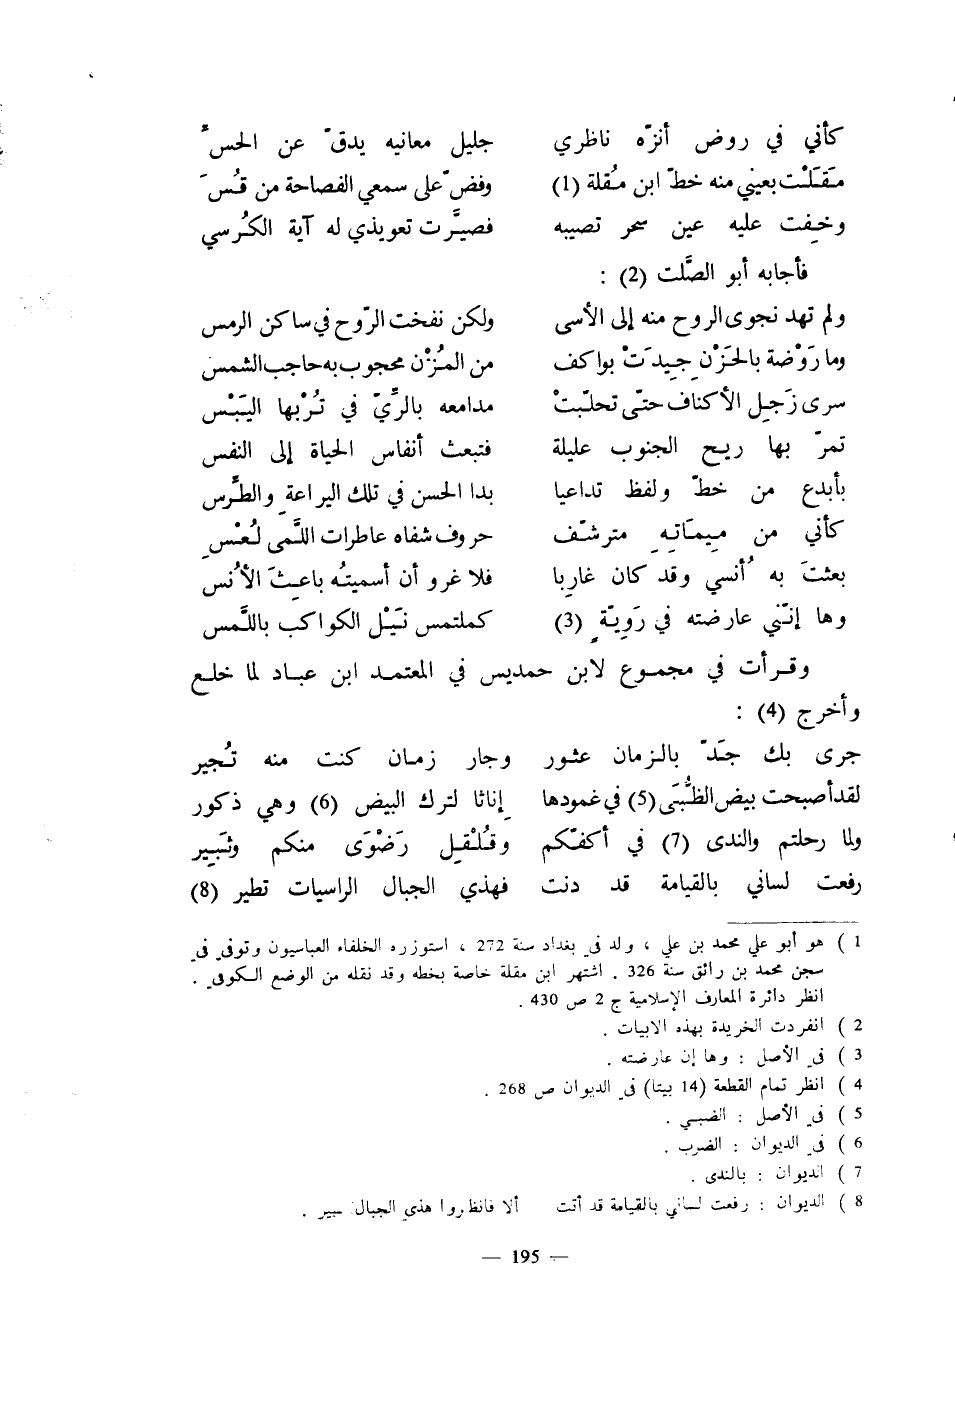 كأني في روض أنزّه ناظري جليل معانيه يدقّ عن الحسّ
مَقَلْت بعيني منه خطّ ابن مُقلة (1) وفضّ على سمعي الفصاحة من قُسّ
وخِفت عليه عين سحر تصيبه فصيَّرت تعويذي له آية الكُرسي
فأجابه أبو الصَّلت (2) :
ولم تهد نجوى الروح منه إلى الأسى ولكن نفخت الرّوح في ساكن الرمس
وما رَوْضة بالحَزْنِ جِيدَتْ بواكف من المُزْن محجوب به حاجب الشمس
سرى زَجِل الأكناف حتّى تحلبتْ مدامعه بالرِّيّ في تُرْبها اليَبْس
تمرّ بها ريح الجنوب عليلة فتبعث أنفاس الحياة إلى النفس
بأبدع من خطّ ولفظ تداعيا بدا الحسن في تلك اليراعةِ والطِّرس
كأني من مِيمَاتِهِ مترشّف حروف شفاه عاطرات اللَّمى لُعْسِ
بعثتَ به أُنسي وقد كان غارِبا فلا غرو أن أسميتُه باعِثَ الأُنس
وها إنّني عارضته في رَوِيّةٍ (3) كملتمس نَيْل الكواكب باللَّمس
وقرأت في مجموع لابن حمديس في المعتمد ابن عباد لما خلع
وأخرج (4) :
جرى بك جَدّ بالزمان عثور وجار زمان كنت منه تُجير
لقد أصبحت بيض الظُّبَى (5) في غمودها إناثا لترك البيض (6) وهي ذكور
ولما رحلتم والندى (7) في أكفّكم وقُلْقِل رَضْوَى منكم وثَبِير
رفعت لساني بالقيامة قد دنت فهذي الجبال الراسيات تطير (8)
1 ) هو أبو علي محمد بن علي ، ولد في بغداد سنة 272 ، استوزره الخلفاء العباسيون وتوفي في
سجن محمد بن رائق سنة 326 . اشتهر ابن مقلة خاصة بخطه وقد نقله من الوضع الكوفي .
انظر دائرة المعارف الإسلامية ج 2 ص 430 .
2 ) انفردت الخريدة بهذه الابيات .
3 ) في الأصل : وها إن عارضته .
4 ) انظر تمام القطعة (14 بيتا) في الديوان ص 268 .
5 ) في الأصل : الضبي .
6 ) في الديوان : الضرب .
7 ) الديوان : بالندى .
8 ) الديوان : رفعت لساني بالقيامة قد أتت ألا فانظروا هذي الجبال تسير .
— 195 —